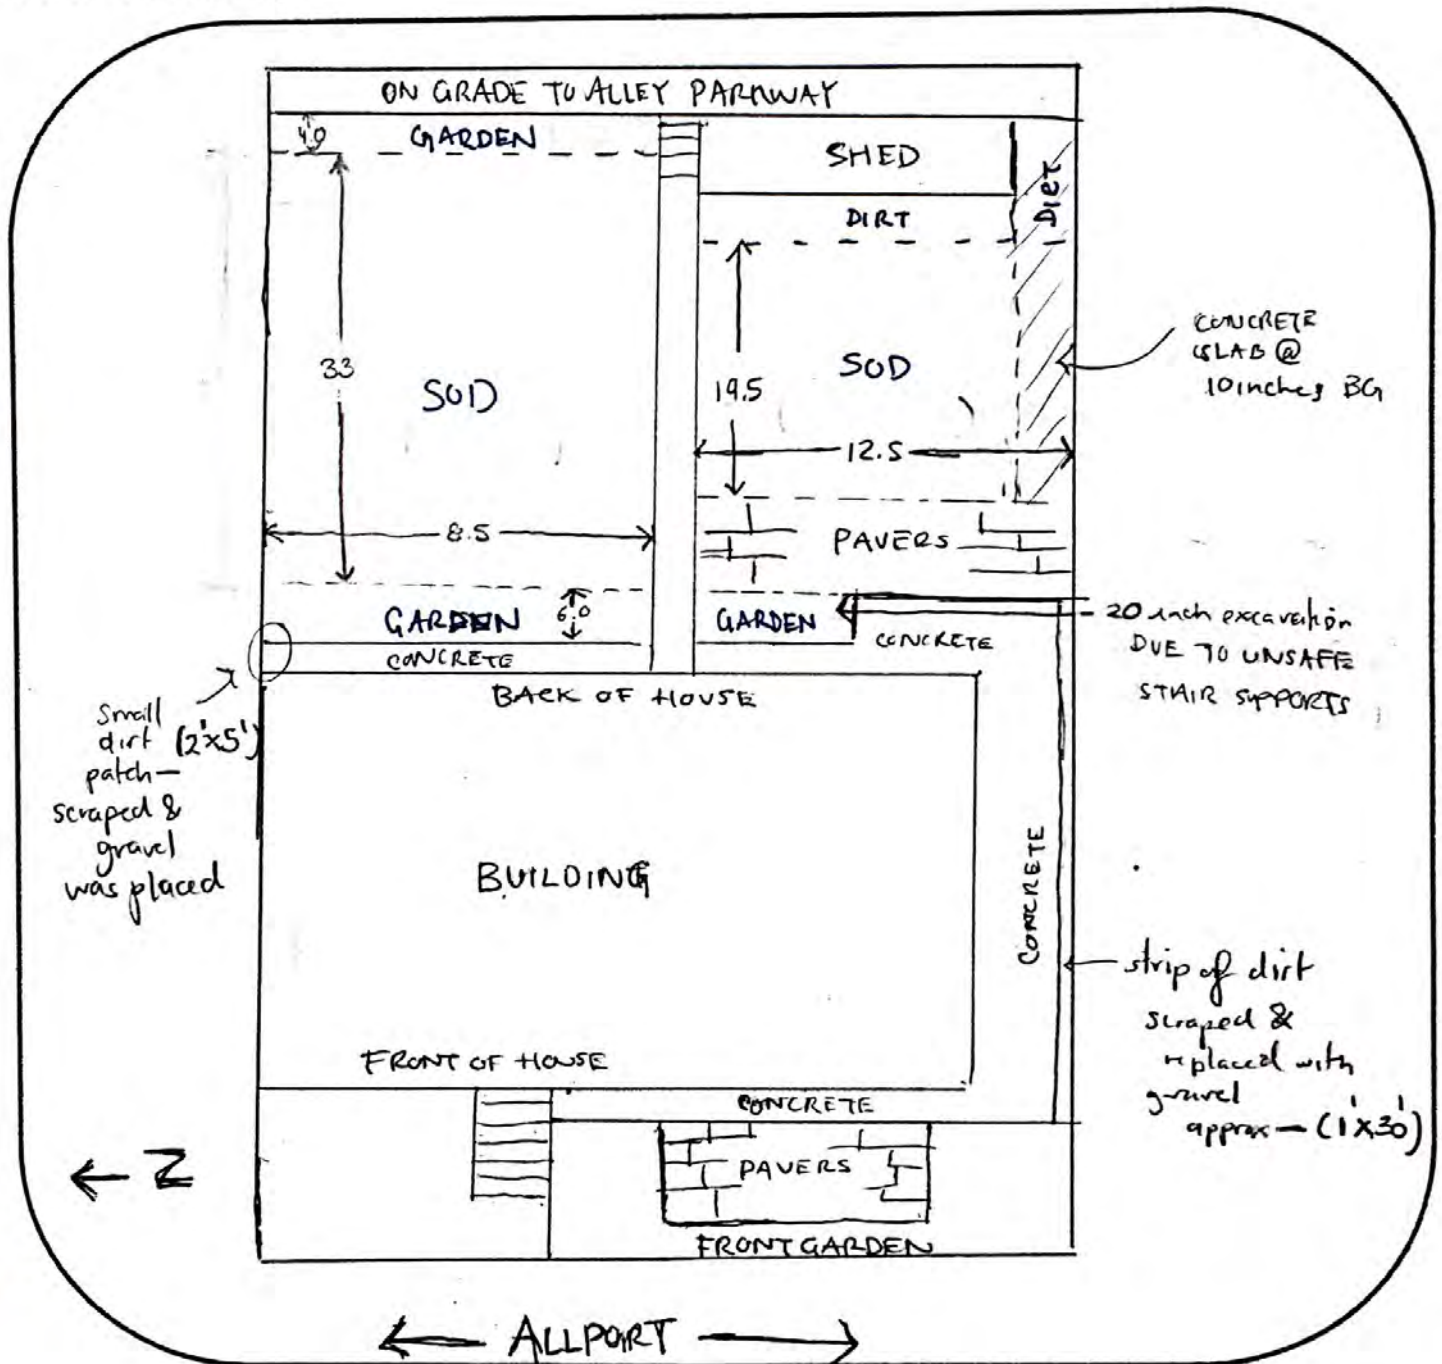 ON GRADE TO ALLEY PARKWAY
4'0
GARDEN
SHED
DIRT
DIRT
33
SOD
19.5
SOD
CONCRETE
SLAB @
10 inches BG
12.5
8.5
PAVERS
GARDEN
6'0
GARDEN
CONCRETE
CONCRETE
20 inch excavation
DUE TO UNSAFE
STAIR SUPPORTS
BACK OF HOUSE
Small
dirt (2'x5')
patch-
scraped &
gravel
was placed
BUILDING
CONCRETE
strip of dirt
scraped &
replaced with
gravel
approx - (1'x30')
FRONT OF HOUSE
CONCRETE
PAVERS
FRONT GARDEN
← N
ALLPORT